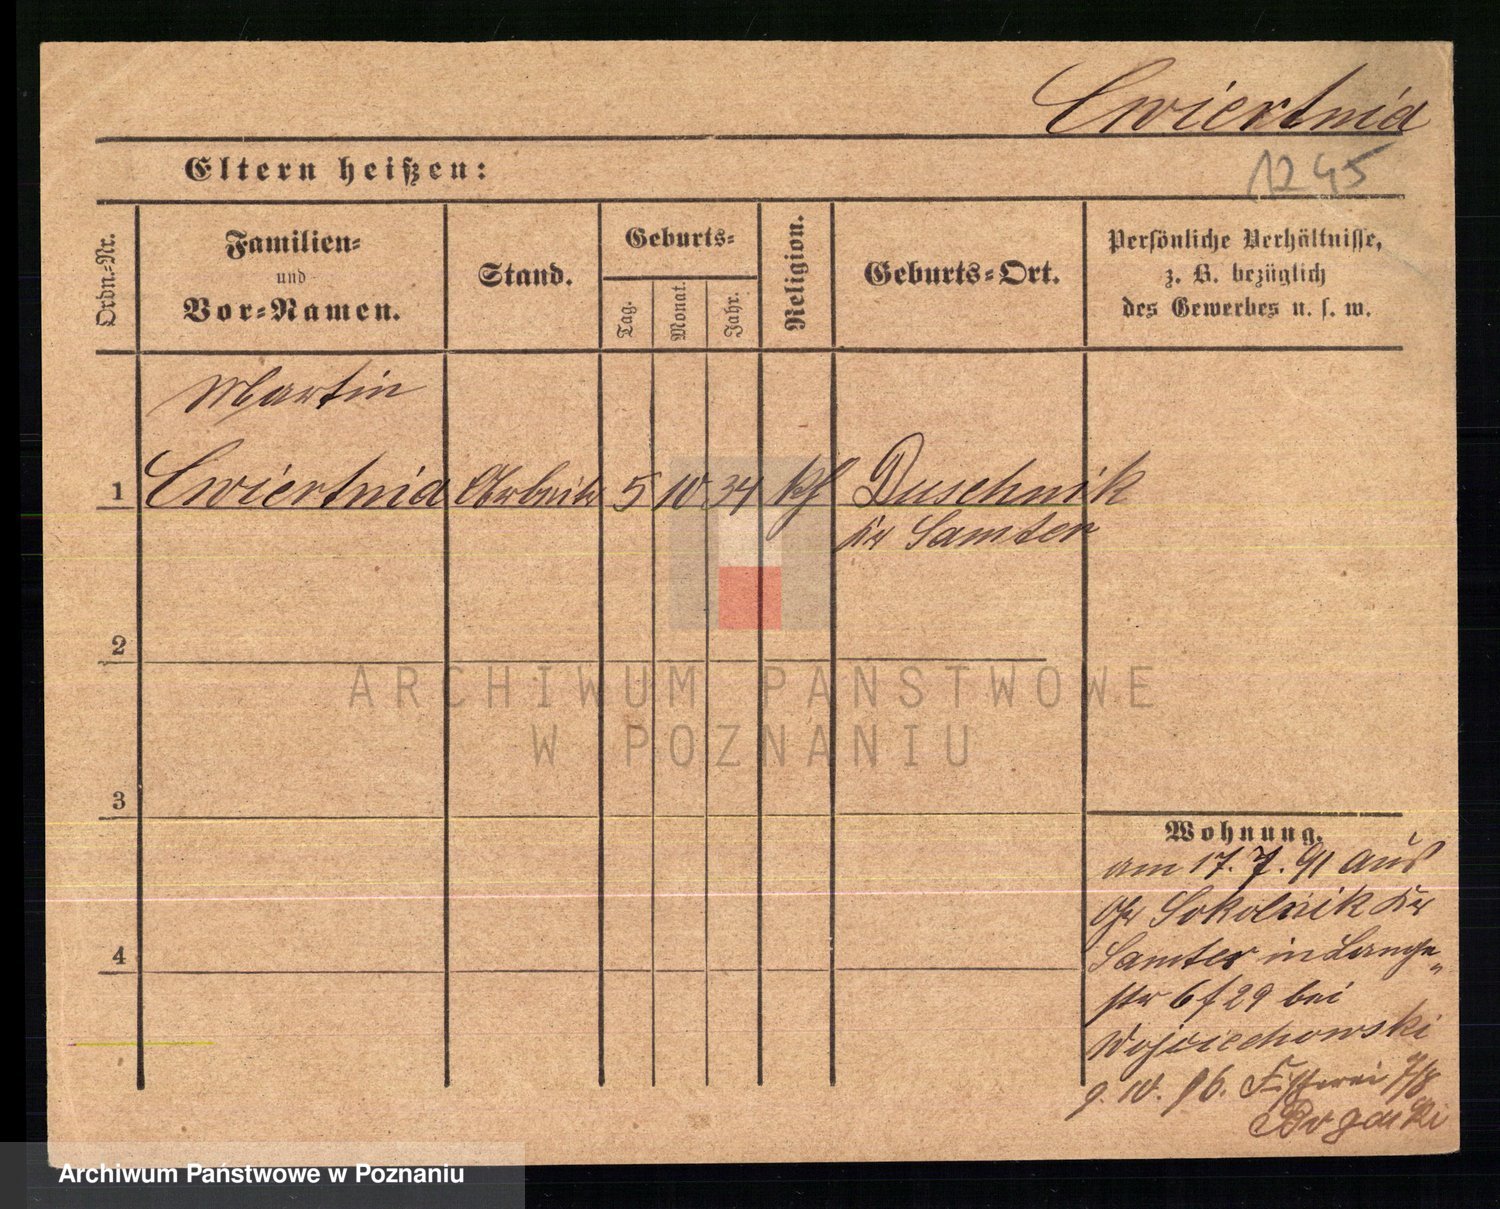 Cwiertnia
Eltern heißen:
1245
Ordn.-Nr.
Familien-
und
Vor-Namen.
Stand.
Geburts-
Tag.
Monat.
Jahr.
Religion.
Geburts-Ort.
Persönliche Verhältnisse,
z. B. bezüglich
des Gewerbes u. s. w.
Martin
1 Cwiertnia Arbeiter 5 10 34 kf Duschnik
Kr Samter
2
3
4
Wohnung.
am 17. 7. 91 aus
Gr Sokolnik Kr
Samter in Lange
str 6 f 29 bei
Wojciechowski
9. 10. 96. Fischerei 7/8
ARCHIWUM PAŃSTWOWE
W POZNANIU
Archiwum Państwowe w Poznaniu